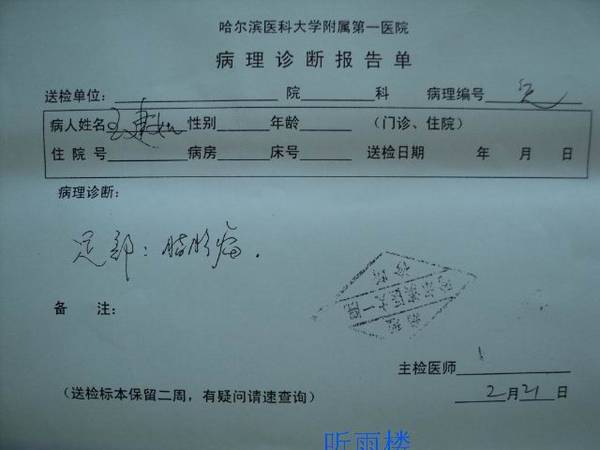 哈尔滨医科大学附属第一医院
病理诊断报告单
送检单位: 院 科 病理编号
病人姓名 性别 年龄 (门诊、住院)
住院号 病房 床号 送检日期 年 月 日
病理诊断:
足部: 脂肪瘤.
备 注:
主检医师
2月21日
(送检标本保留二周，有疑问请速查询)
听雨楼